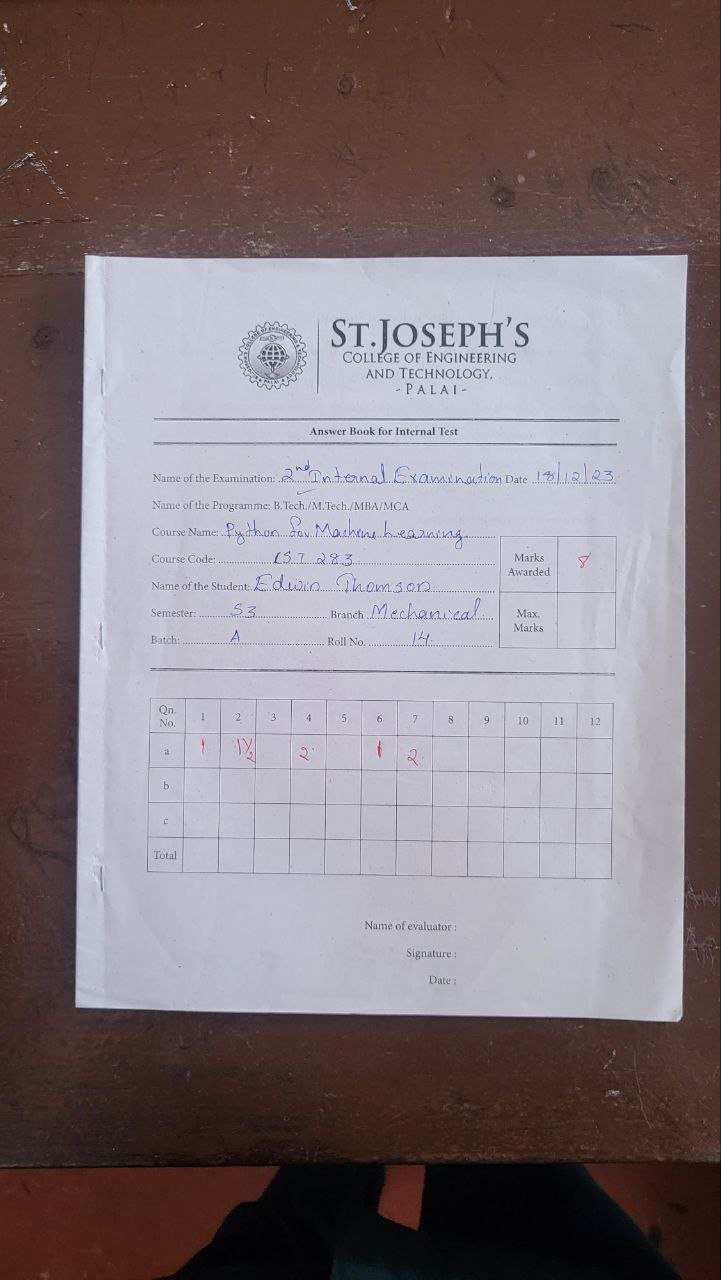 ST.JOSEPH'S
COLLEGE OF ENGINEERING
AND TECHNOLOGY,
-PALAI-
Answer Book for Internal Test
Name of the Examination: 2nd Internal Examination Date 18/12/23
Name of the Programme: B.Tech./M.Tech./MBA/MCA
Course Name: Python for Machine Learning
Course Code: CST 283
Marks Awarded 8
Name of the Student: Edwin Thomson
Semester: S3 Branch Mechanical
Max. Marks
Batch: A Roll No. 14
Qn. No. 1 2 3 4 5 6 7 8 9 10 11 12
a 1 1½ 2 1 2
b
c
Total
Name of evaluator :
Signature :
Date :